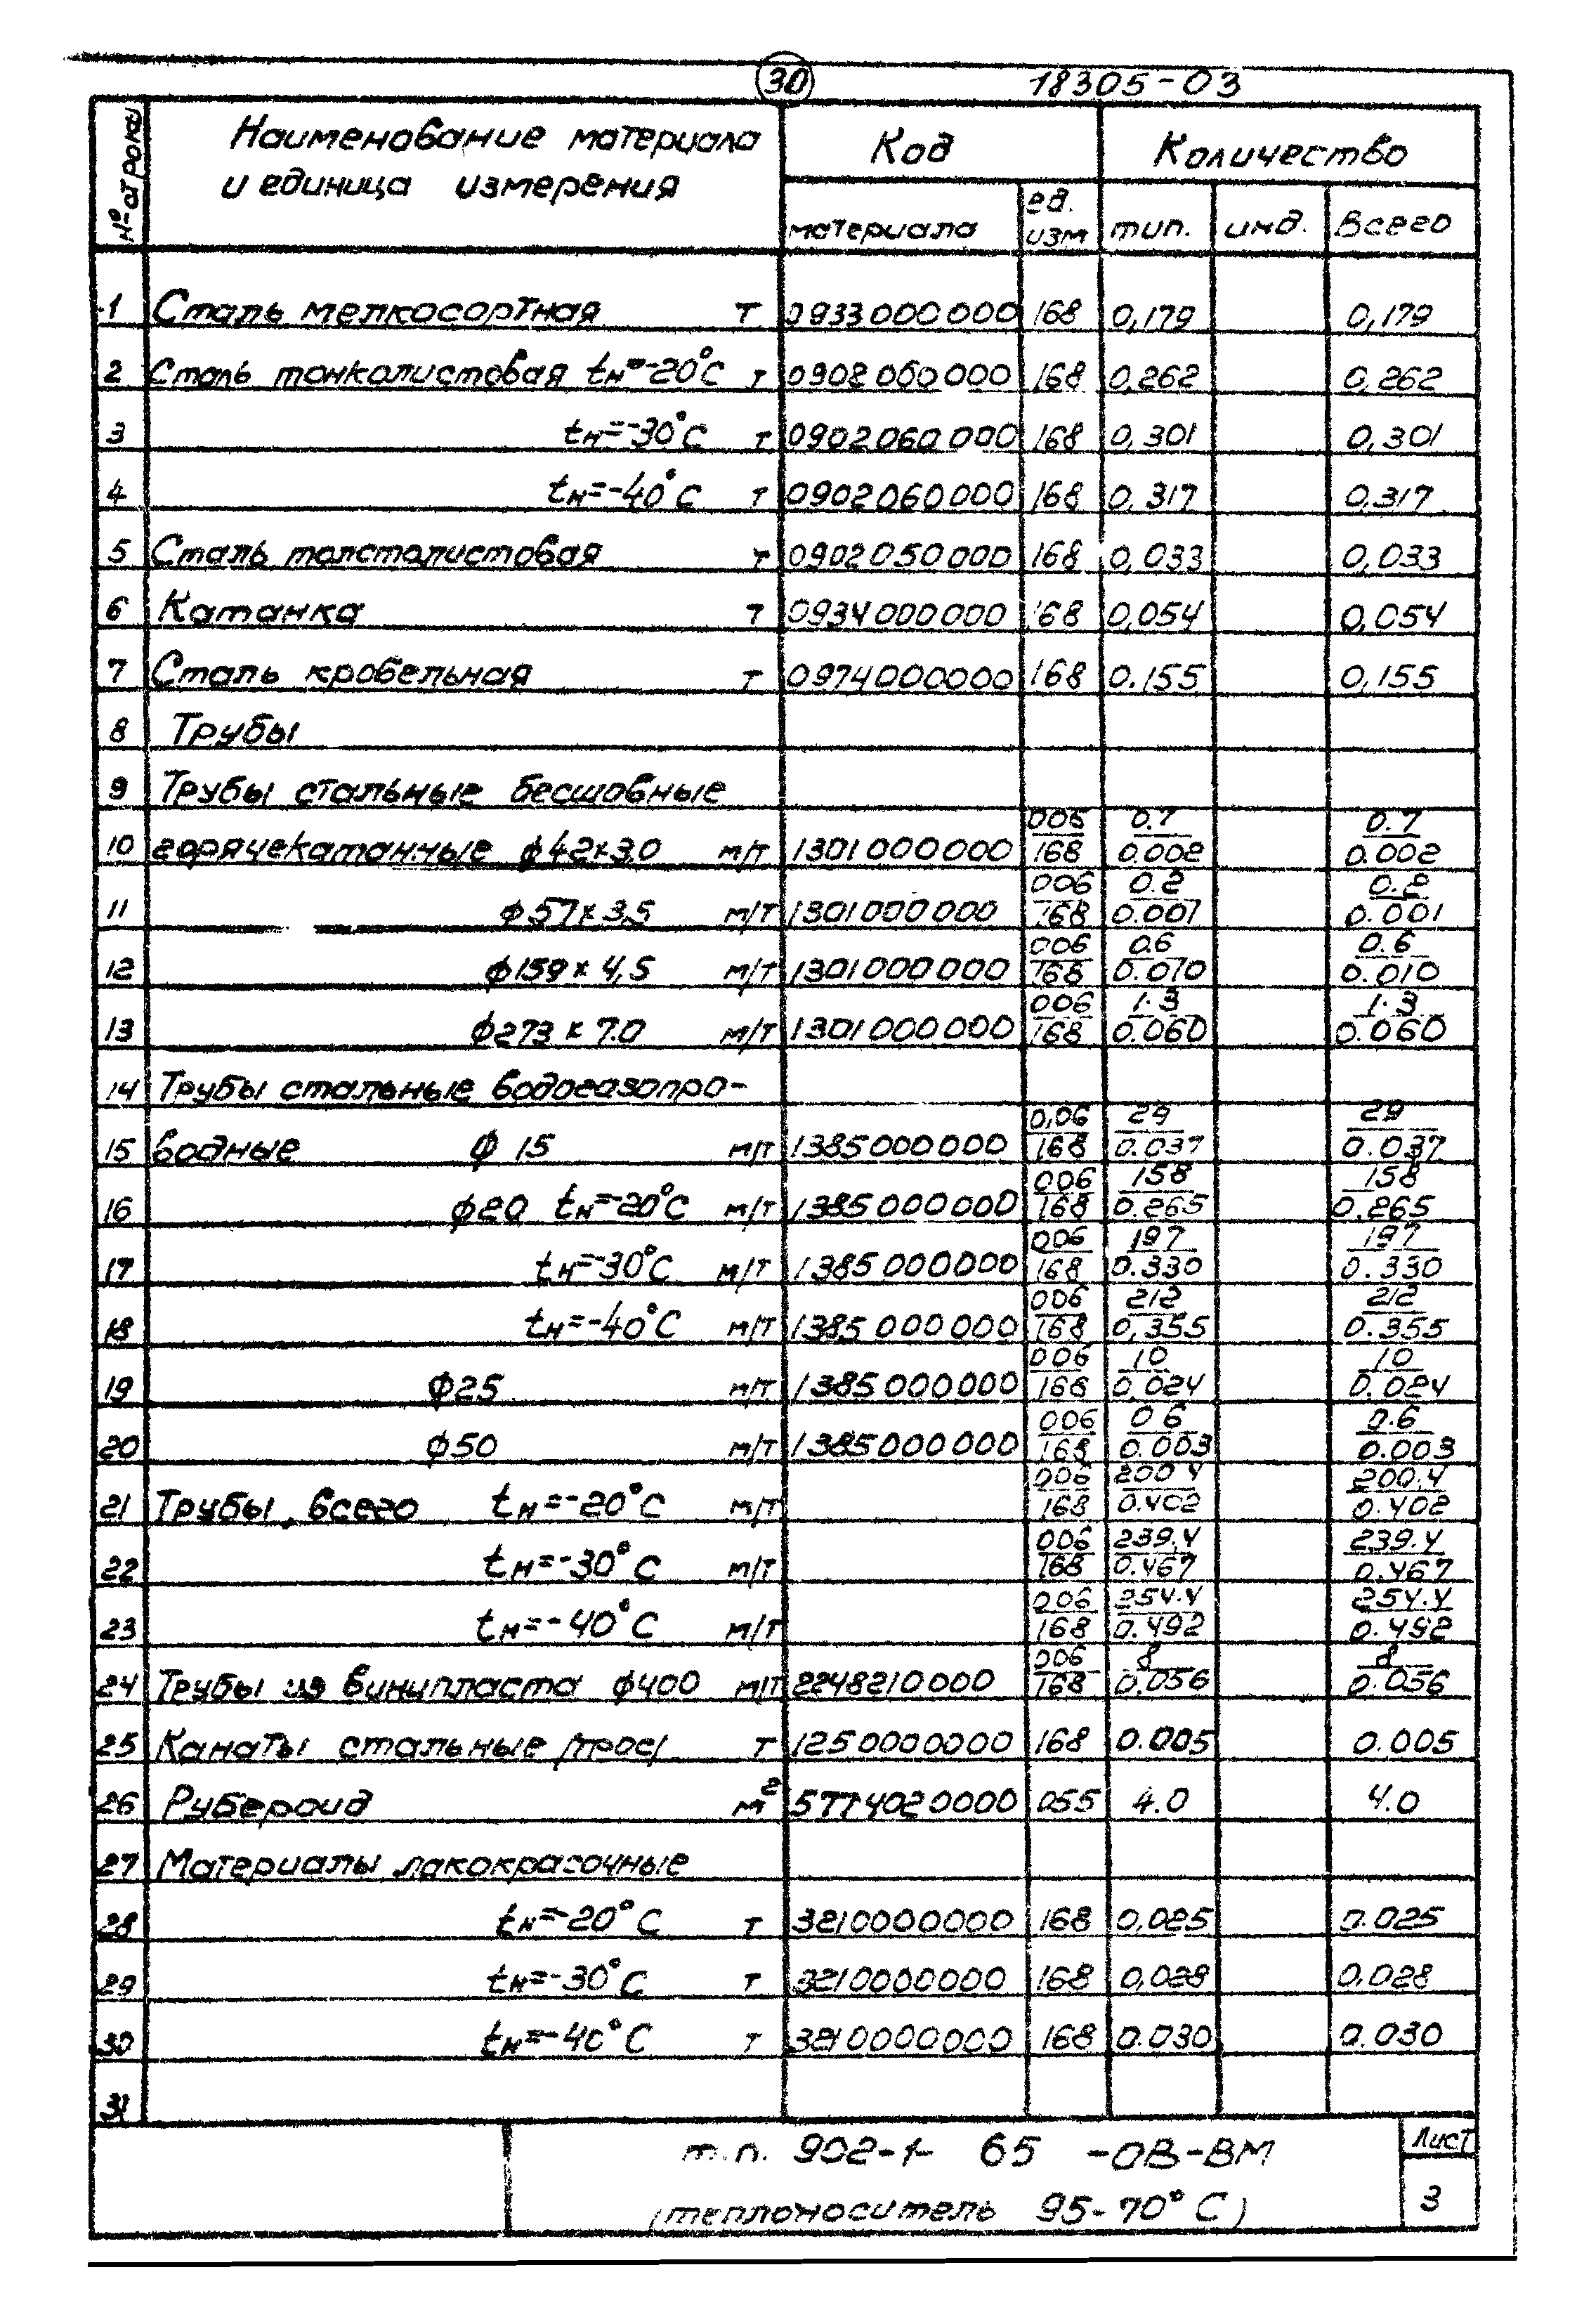 30 18305-03
№ строки Наименование материала и единица измерения Код Количество
материала ед. изм тип. инд. Всего
1 Сталь мелкосортная т 0933000000 168 0,179 0,179
2 Сталь тонколистовая tн=-20°С т 0902060000 168 0,262 0,262
3 tн=-30°С т 0902060000 168 0,301 0,301
4 tн=-40°С т 0902060000 168 0,317 0,317
5 Сталь толстолистовая т 0902050000 168 0,033 0,033
6 Катанка т 0934000000 168 0,054 0,054
7 Сталь кровельная т 0974000000 168 0.155 0,155
8 Трубы
9 Трубы стальные бесшовные
006 0.7 0.7
10 горячекатанные ф42×3,0 м/т 1301000000 168 0.002 0.002
006 0.2 0.2
11 ф57×3,5 м/т 1301000000 168 0.001 0.001
006 0.6 0.6
12 ф159×4,5 м/т 1301000000 168 0.010 0.010
006 1.3 1.3
13 ф273×7.0 м/т 1301000000 168 0.060 0.060
14 Трубы стальные водогазопро-
0,06 29 29
15 водные ф 15 м/т 1385000000 168 0.037 0.037
006 158 158
16 ф20 tн=-20°С м/т 1385000000 168 0.265 0.265
006 197 197
17 tн=-30°С м/т 1385000000 168 0.330 0.330
006 212 212
18 tн=-40°С м/т 1385000000 168 0,355 0.355
006 10 10
19 ф25 м/т 1385000000 168 0,024 0.024
006 0 6 0.6
20 ф50 м/т 1385000000 168 0.003 0.003
006 200 4 200.4
21 Трубы, всего tн=-20°С м/т 168 0.402 0.402
006 239,4 239.4
22 tн=-30°С м/т 168 0.467 0.467
006 254.4 254.4
23 tн=-40°С м/т 168 0.492 0.492
006 8 8
24 Трубы из винипласта ф400 м/т 2248210000 168 0.056 0.056
25 Канаты стальные /трос/ т 1250000000 168 0.005 0.005
26 Рубероид м² 5774020000 055 4.0 4.0
27 Материалы лакокрасочные
28 tн=-20°С т 3210000000 168 0,025 0.025
29 tн=-30°С т 3210000000 168 0,028 0,028
30 tн=-40°С т 3210000000 168 0.030 0.030
31
т.п. 902-1- 65 -ОВ-ВМ Лист
(теплоноситель 95-70°С) 3